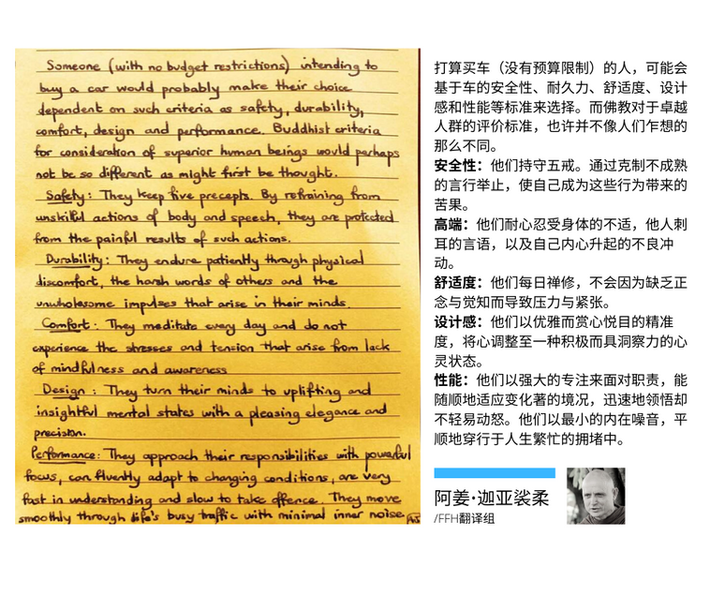 Someone (with no budget restrictions) intending to
buy a car would probably make their choice
dependent on such criteria as safety, durability,
comfort, design and performance. Buddhist criteria
for consideration of superior human beings would perhaps
not be so different as might first be thought.
Safety: They keep five precepts. By refraining from
unskilful actions of body and speech, they are protected
from the painful results of such actions.
Durability: They endure patiently through physical
discomfort, the harsh words of others and the
unwholesome impulses that arise in their minds.
Comfort: They meditate every day and do not
experience the stresses and tension that arise from lack
of mindfulness and awareness
Design: They turn their minds to uplifting and
insightful mental states with a pleasing elegance and
precision.
Performance: They approach their responsibilities with powerful
focus, can fluently adapt to changing conditions, are very
fast in understanding and slow to take offence. They move
smoothly through life's busy traffic with minimal inner noise. AJ
打算买车（没有预算限制）的人，可能会
基于车的安全性、耐久力、舒适度、设计
感和性能等标准来选择。而佛教对于卓越
人群的评价标准，也许并不像人们乍想的
那么不同。
安全性：他们持守五戒。通过克制不成熟
的言行举止，使自己成为这些行为带来的
苦果。
高端：他们耐心忍受身体的不适，他人刺
耳的言语，以及自己内心升起的不良冲
动。
舒适度：他们每日禅修，不会因为缺乏正
念与觉知而导致压力与紧张。
设计感：他们以优雅而赏心悦目的精准
度，将心调整至一种积极而具洞察力的心
灵状态。
性能：他们以强大的专注来面对职责，能
随顺地适应变化著的境况，迅速地领悟却
不轻易动怒。他们以最小的内在噪音，平
顺地穿行于人生繁忙的拥堵中。
阿姜·迦亚裟柔
/FFH翻译组